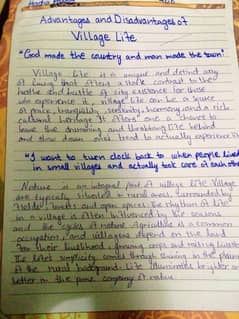 Advantages and Disadvantages of
Village Life
"God made the country and man made the town"
Village life is a unique and distinct way
of living that offers a stark contrast to the
hustle and bustle of city existence. For those
who experience it, village life can be a source
of peace, tranquility, serenity, and a rich
cultural heritage. It offers one a chance to
leave the drumming and throbbing life behind
and slow down and tend to actually
"I want to turn clock back to when people lived
in small villages and actually took care of each other"
Nature is an integral part of village life. Village
are typically situated in rural areas, surrounded
fields, forests and open spaces. The rhythm of life
in a village is often influenced by the seasons
and the cycles of nature. Agriculture is a common
occupation, and villagers depend on the land
for their livelihood, growing crops and raising livestock
The latest simplicity comes through shining in the
of the rural background. Life illuminates brighter and
better in the pure company of nature.